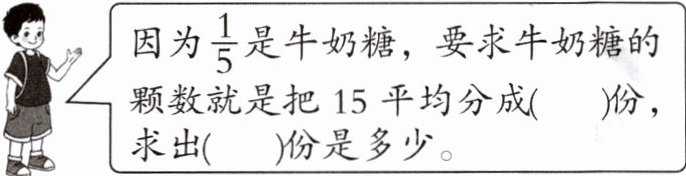 因为1/5是牛奶糖，要求牛奶糖的
颗数就是把 15 平均分成(　　)份，
求出(　　)份是多少。